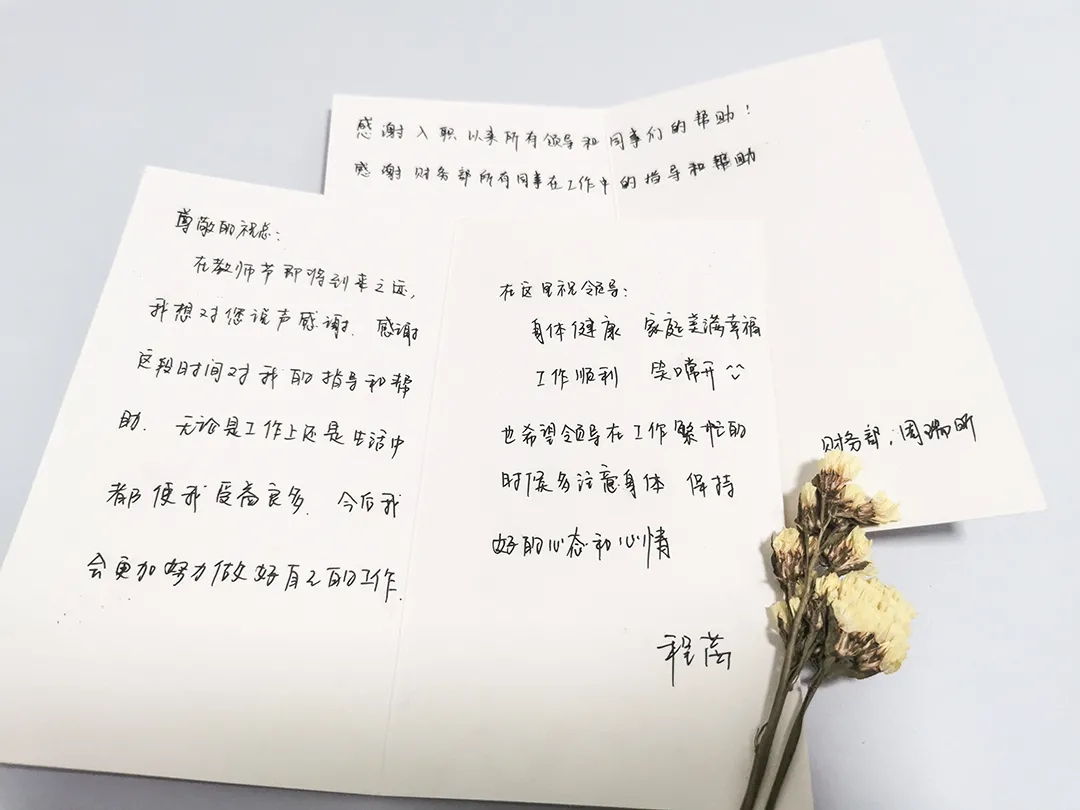 感谢入职以来所有领导和同事们的帮助！
感谢财务部所有同事在工作中的指导和帮助
财务部：周瑞昕
尊敬的祝总：
在教师节即将到来之际，
我想对您说声感谢. 感谢
这段时间对我的指导和帮
助. 无论是工作上还是生活中
都使我受益良多. 今后我
会更加努力做好自己的工作.
在这里祝领导：
身体健康 家庭美满幸福
工作顺利 笑口常开
也希望领导在工作繁忙的
时候多注意身体 保持
好的心态和心情
程